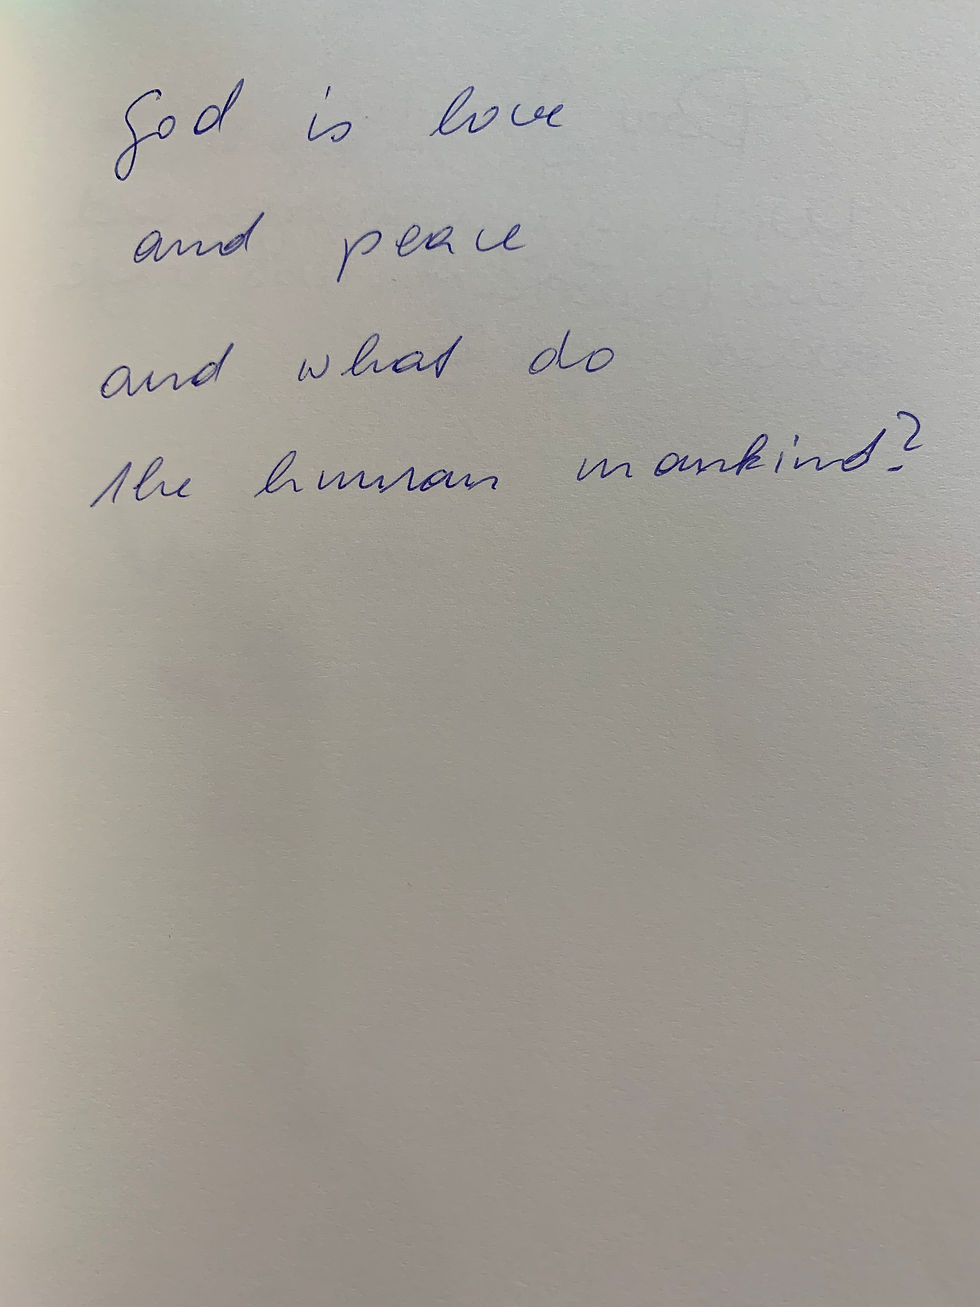 God is love
and peace
and what do
the human mankind?